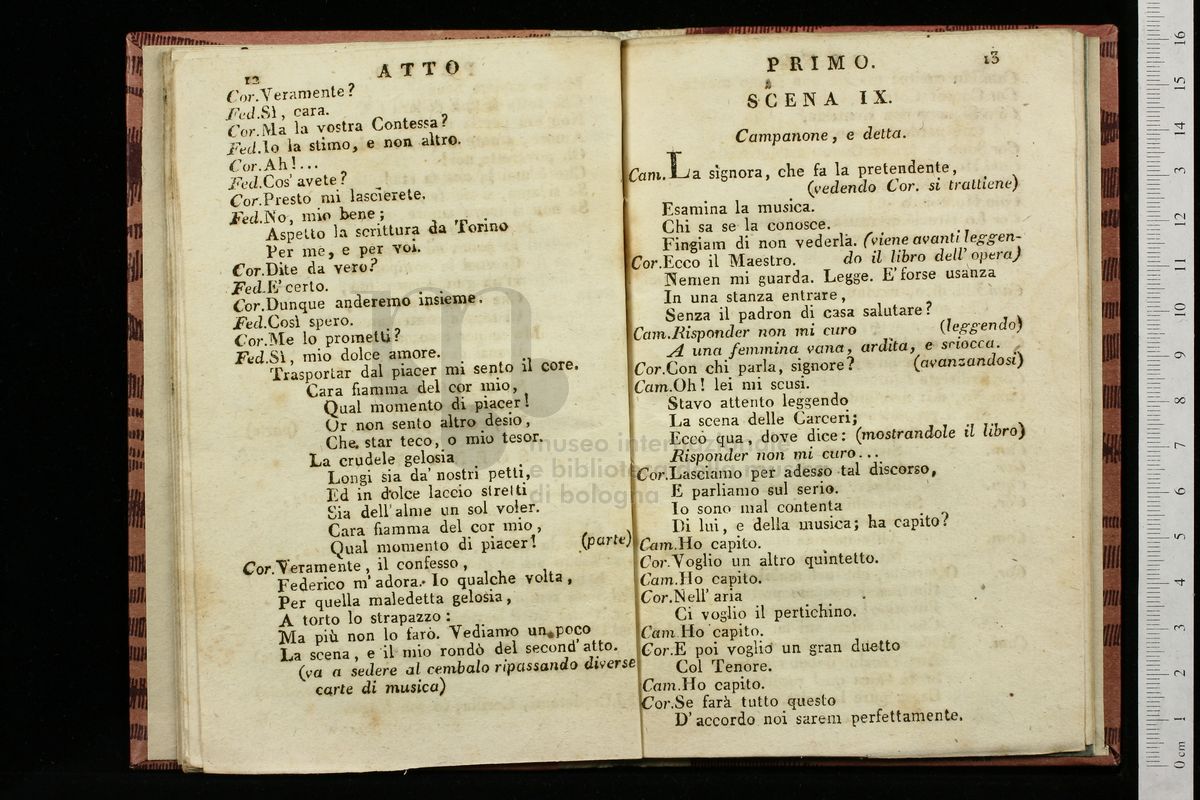 12
ATTO
Cor.Veramente?
Fed.Sì, cara.
Cor.Ma la vostra Contessa?
Fed.Io la stimo, e non altro.
Cor.Ah!...
Fed.Cos' avete?
Cor.Presto mi lascierete.
Fed.No, mio bene;
Aspetto la scrittura da Torino
Per me, e per voi.
Cor.Dite da vero?
Fed.E' certo.
Cor.Dunque anderemo insieme.
Fed.Così spero.
Cor.Me lo prometti?
Fed.Sì, mio dolce amore.
Trasportar dal piacer mi sento il core.
Cara fiamma del cor mio,
Qual momento di piacer!
Or non sento altro desio,
Che star teco, o mio tesor.
La crudele gelosia
Longi sia da' nostri petti,
Ed in dolce laccio stretti
Sia dell' alme un sol voler.
Cara fiamma del cor mio,
Qual momento di piacer! (parte)
Cor.Veramente, il confesso,
Federico m' adora. Io qualche volta,
Per quella maledetta gelosia,
A torto lo strapazzo:
Ma più non lo farò. Vediamo un poco
La scena, e il mio rondò del second' atto.
(va a sedere al cembalo ripassando diverse
carte di musica)
PRIMO.
13
SCENA IX.
Campanone, e detta.
Cam.La signora, che fa la pretendente,
(vedendo Cor. si trattiene)
Esamina la musica.
Chi sa se la conosce.
Fingiam di non vederla. (viene avanti leggen-
Cor.Ecco il Maestro. do il libro dell' opera)
Nemen mi guarda. Legge. E' forse usanza
In una stanza entrare,
Senza il padron di casa salutare?
Cam.Risponder non mi curo (leggendo)
A una femmina vana, ardita, e sciocca.
Cor.Con chi parla, signore? (avanzandosi)
Cam.Oh! lei mi scusi.
Stavo attento leggendo
La scena delle Carceri;
Ecco qua, dove dice: (mostrandole il libro)
Risponder non mi curo...
Cor.Lasciamo per adesso tal discorso,
E parliamo sul serio.
Io sono mal contenta
Di lui, e della musica; ha capito?
Cam.Ho capito.
Cor.Voglio un altro quintetto.
Cam.Ho capito.
Cor.Nell' aria
Ci voglio il pertichino.
Cam Ho capito.
Cor.E poi voglio un gran duetto
Col Tenore.
Cam.Ho capito.
Cor.Se farà tutto questo
D' accordo noi sarem perfettamente.
m
museo internazionale
e biblioteca della musica
di bologna
0 cm 1 2 3 4 5 6 7 8 9 10 11 12 13 14 15 16